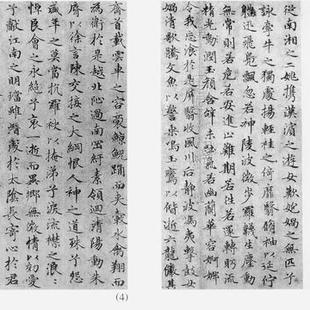 從南湘之二姚攜漢濱之遊女歎匏媧之無匹兮
詠牽牛之獨處揚輕袿之猗靡翳脩袖以延佇
體迅飛鳧飄忽若神陵波微步羅韈生塵動
無常則若危若安進止難期若往若還轉眄流
精光潤玉顏含辭未吐氣若幽蘭華容婀娜
令我忘湌於是屏翳收風川后靜波馮夷擊鼓女
媧清歌騰文魚以警乘鳴玉鸞以偕逝六龍儼其
齊首載雲車之容裔鯨鯢踊而夾轂水禽翔而
為衛於是越北沚過南岡紆素領迴清陽動朱
脣以徐言陳交接之大綱恨人神之道殊兮怨
盛年之莫當抗羅袂以掩涕兮淚流襟之浪浪
悼良會之永絕兮哀一逝而異鄉無微情以效愛
兮獻江南之明璫雖潛處於太陰長寄心於君
(4)